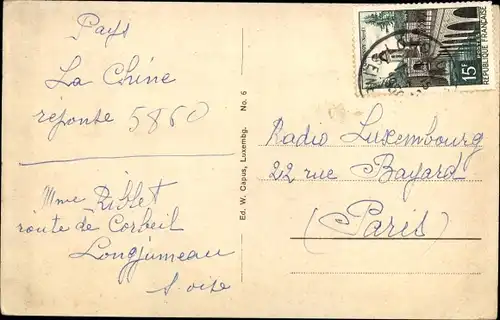 Pays
La Chine
réponse 5860
Mme Riblet
route de Corbeil
Longjumeau
S. oise
Ed. W. Capus, Luxembg. No. 6
15F
REPUBLIQUE FRANÇAISE
Radio Luxembourg
22 rue Bayard
(Paris)